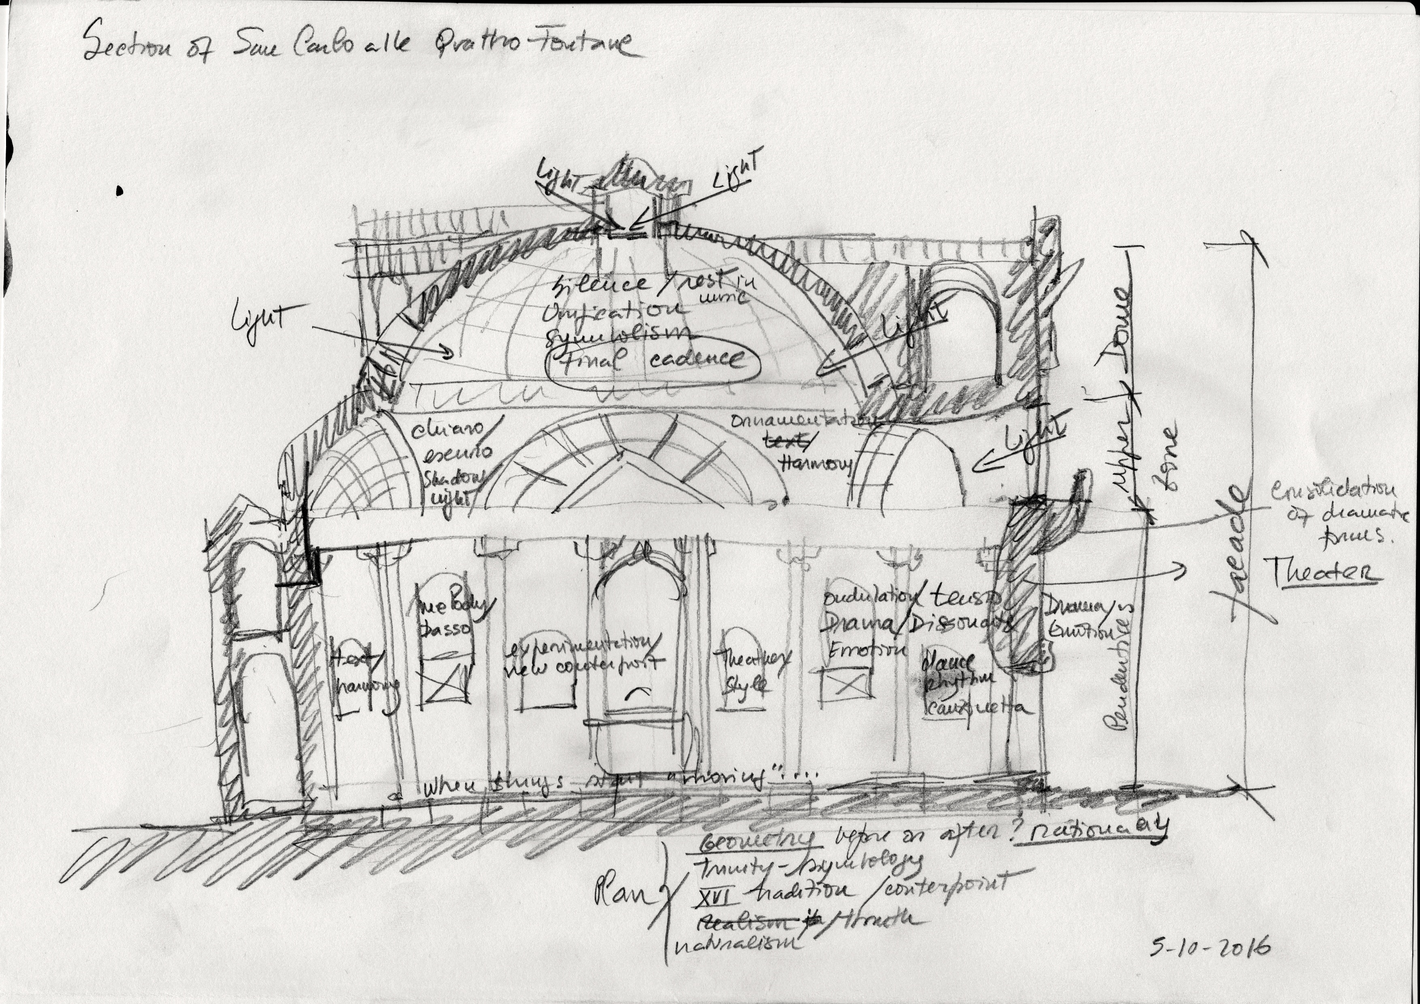 Section of San Carlo alle Quattro Fontane
Light
Light
Light
Silence / rest in
music
Unification
Symbolism
Final cadence
Light
Light
chiaro/
oscuro
Shadow
light
Ornamentation
text/
Harmony
Upper / Dome
zone
facade
Consolidation
of dramatic
forms.
Theater
melody/
basso
text/
harmony
experimentation/
new conterpoint
Theather/
Style
ondulation/
Drama/Dissonants
Emotion
dance
rhythm
canzonetta
Drama/
Emotion
Pendentive
when things start "moving"....
Plan
Geometry before or after? rationality
trinity - symbology
XVI tradition / conterpoint
Realism / truth
naturalism
5-10-2016